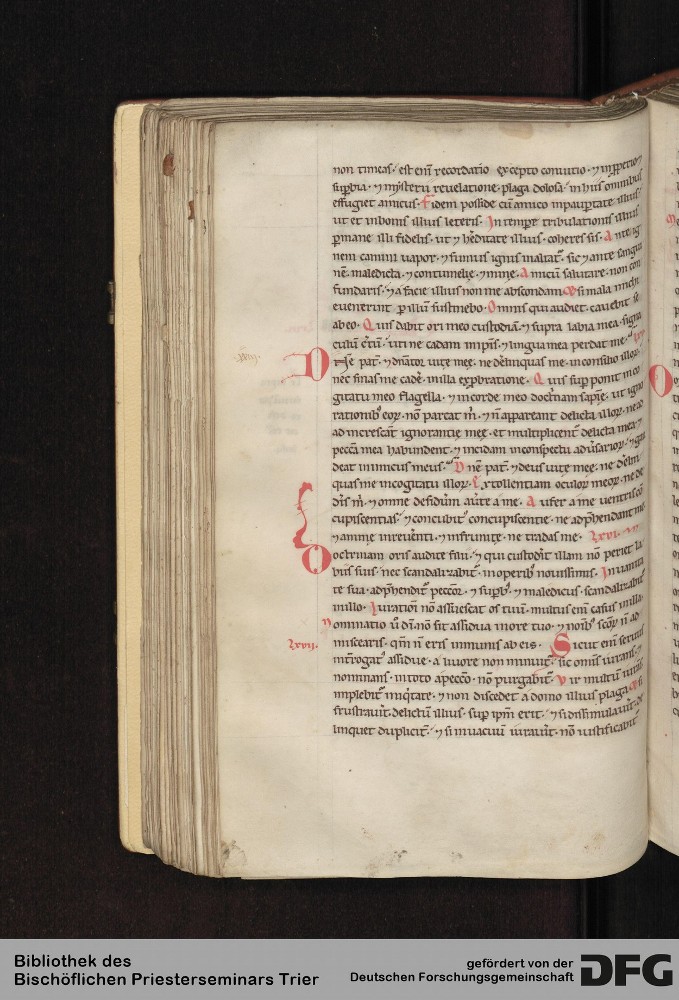 non timeas. est eni recordatio excepto conuitio. ⁊ inpperio
supbia. ⁊ mysterii reuelatione. plaga dolosa. in hiis omnibus
effugiet amicus. Fidem posside cū amico inpaupertate illius.
ut et inbonis illius leteris. In tempore tribulationis illius
pmane illi fidelis. ut ⁊ hēditate illius. coheres sis. Ante ig
nem camini uapor. ⁊ fumus ignis inaltat. sic ⁊ ante sangui
nē. maledicta. ⁊ contumelie. ⁊ mine. Amicū salutare. non con
fundaris. ⁊ a facie illius non me abscondam. si mala michi
euenerint p illū sustinebo. Omnis qui audiet. cauebit se
ab eo. Quis dabit ori meo custodiā. ⁊ supra labia mea. signa
culū ctū. uti ne cadam inipsis. ⁊ lingua mea perdat me.
Dne pat. ⁊ dnator uite mee. ne delinquas me. inconsilio illor.
nec sinas me cade. inilla expbratione. Quis sup ponit in co
gitatu meo flagella. ⁊ in corde meo doctnam sapie. ut igno
rationib eor. non parcat m. ⁊ n appareant delicta illor. ne ad
ad increscāt ignorantie mee. et multiplicent delicta mea. ⁊
peccā mea habundent. ⁊ incidam inconspectu aduersarior. ⁊ gau
deat inimicus meus. Dne pat. ⁊ deus uite mee. ne delin
quas me in cogitatu illor. Extollentiam oculor meor. ne de
⁊ omne desidium auerte a me. Aufer a me uentris cō
cupiscentias. ⁊ concubit concupiscentie. ne adphendant me.
⁊ anime inreuenti. ⁊ infrunite. ne tradas me. Lxvi.
Doctrinam oris audite filii. ⁊ qui custodit illam nō periet la
biis suis. nec scandalizabit. inoperib nouissimis. In uanita
te sua. adphendit peccor. ⁊ supb. ⁊ maledicus. scandalizabit
inillo. Iurationi nō assuescat os tuū. multus eni casus inilla.
nominatio ū di. nō sit assidua in ore tuo. ⁊ noib scor n ad
Lxvii. miscearis. qm n eris inmunis ab eis. Sicut eni seruus
introgat assidue. a liuore non minuit. sic omis iurans. ⁊
nominans. in toto a pecco. nō purgabit. Vir multū iurās
implebit iniqtate. ⁊ non discedet a domo illius plaga. si
frustrauit. delictū illius. sup ipm erit. ⁊ si dissimulauit. de
linquet dupliciter. ⁊ si in uacuū iurauit. nō iustificabit
Bibliothek des
Bischöflichen Priesterseminars Trier
gefördert von der
Deutschen Forschungsgemeinschaft
DFG